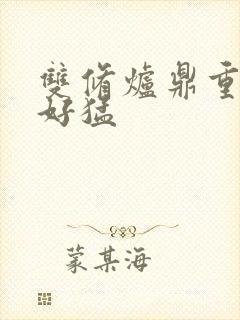 雙脩爐鼎重
好猛
蒙某海